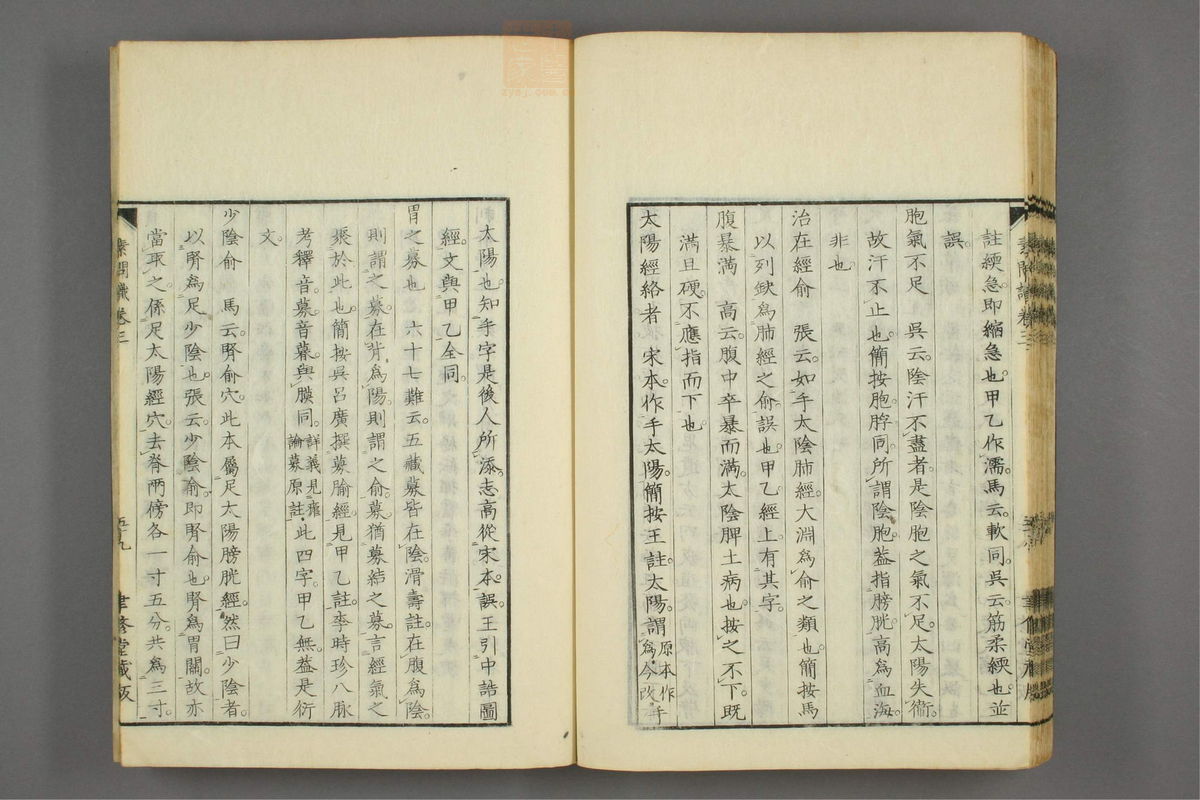 註緛急。即縮急也。甲乙作濡。馬云。軟同。吳云。筋柔緛也。並
誤。
胞氣不足　吳云。陰汗不盡者。是陰胞之氣不足。太陽失衞。
故汗不止也。簡按胞脬同。所謂陰胞。蓋指膀胱。高爲血海。
非也。
治在經俞　張云。如手太陰肺經。大淵爲俞之類也。簡按馬
以列缺爲肺經之俞。誤也。甲乙經上。有其字。
腹暴滿　高云。腹中卒暴而滿。太陰脾土病也。按之不下。既
滿且硬。不應指而下也。
太陽經絡者　宋本。作手太陽。簡按王註。太陽。謂原本作
爲。今改手
太陽也。知手字是後人所添。志高從宋本。誤。王引中誥圖
經文。與甲乙全同。
胃之募也　六十七難云。五藏募皆在陰。滑壽註。在腹爲陰。
則謂之募。在背爲陽。則謂之俞。募猶募結之募。言經氣之
聚於此也。簡按吳呂廣撰募腧經。見甲乙註。李時珍八脉
考釋音。募音暮。與膜同。詳義見瘧
論募原註。此四字。甲乙無。蓋是衍
文。
少陰俞　馬云。腎俞穴。此本屬足太陽膀胱經。然曰少陰者。
以腎爲足少陰也。張云。少陰俞。即腎俞也。腎爲胃關。故亦
當取之。係足太陽經穴。去脊兩傍各一寸五分。共爲三寸。
素問識卷三
五十九
聿修堂藏版